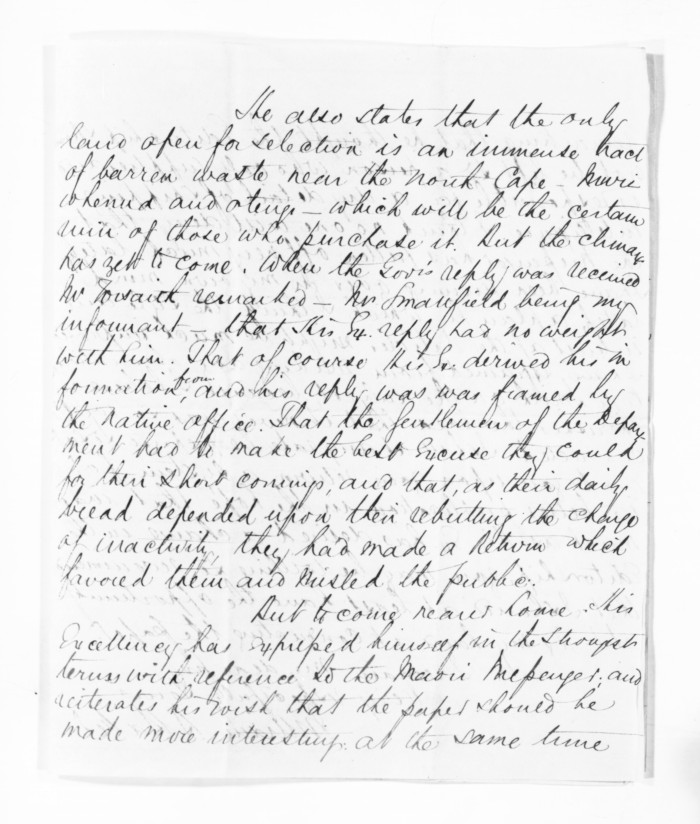 He also states that the only
land open for selection is an immense tract
of barren waste near the North Cape - Muri
whenua and otengi - which will be the certain
ruin of those who purchase it. But the climax
has yet to come. When the Gov's reply was received
Mr Forsaith remarked - Mr Smallfield being my
informant - that His Ex. reply had no weight
with him. That of course His Ex. derived his in
formation from, and his reply was was framed by
the Native office. That the gentlemen of the Depart
ment had to make the best Excuse they could
for their short comings, and that, as their daily
bread depended upon their rebutting the charge
of inactivity they had made a Return which
favored them and misled the public.
But to come nearer home. His
Excellency has expressed himself in the strongest
terms with reference to the Maori Messenger; and
reiterates his wish that the paper should be
made more interesting. at the same time